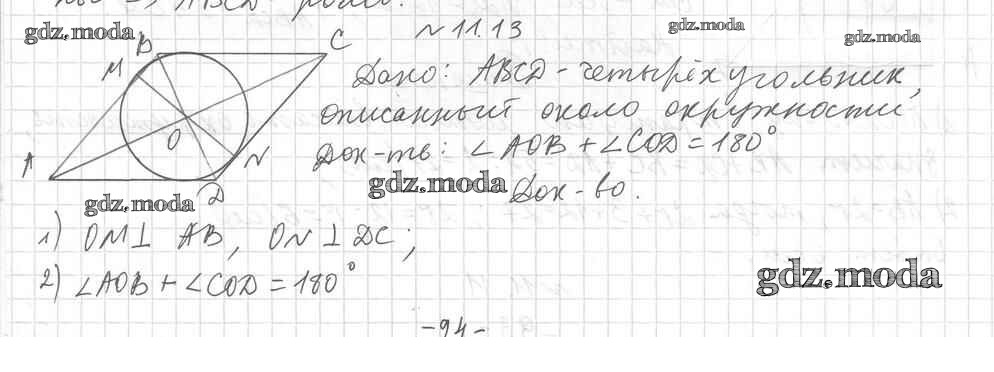 gdz.moda
№ 11.13
gdz.moda
gdz.moda
B
C
M
O
A
N
D
Дано: ABCD - четырёхугольник,
описанный около окружности
Док-ть: ∠AOB + ∠COD = 180°
gdz.moda
Док-во.
gdz.moda
1) OM ⊥ AB, ON ⊥ DC;
2) ∠AOB + ∠COD = 180°
gdz.moda
-94-